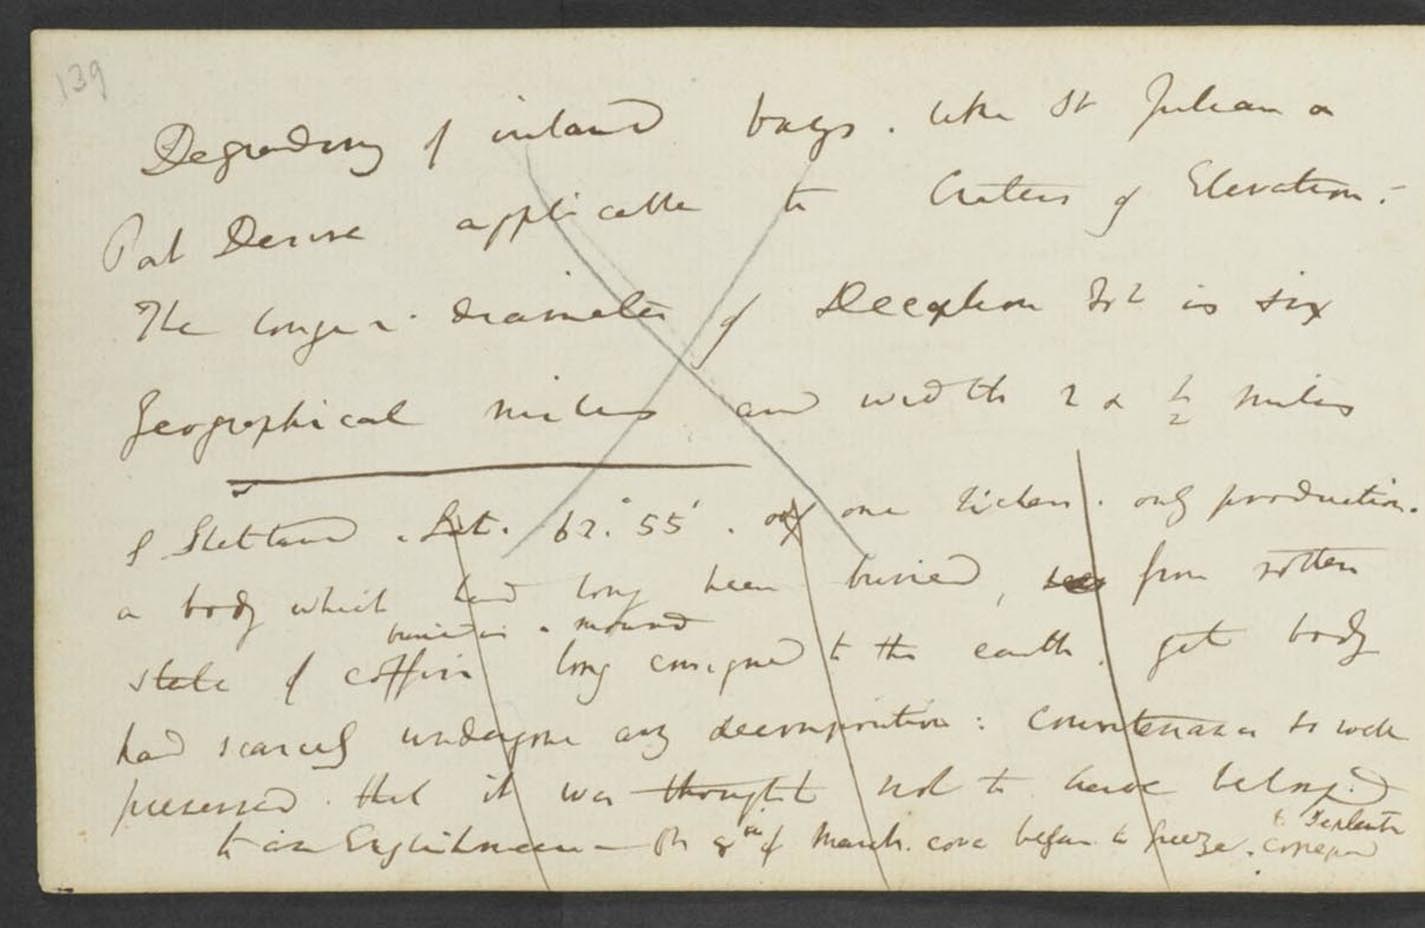 139
Degrading of inland bays. like St Julian &
Port Desire applicable to Craters of Elevation.—
The longer diameter of Deception Isld is six
Geographical miles and width 2 & 1/2 miles
S Shetland. Lat. 62.° 55'. only one lichen. only production.
a body which had long been buried, from rotten
buried in a mound
state of coffin long consigned to the earth. yet body
had scarcely undergone any decomposition: Countenance so well
preserved. that it was thought not to have belonged
to an Englishman — On 8th of March. cove began to freeze.